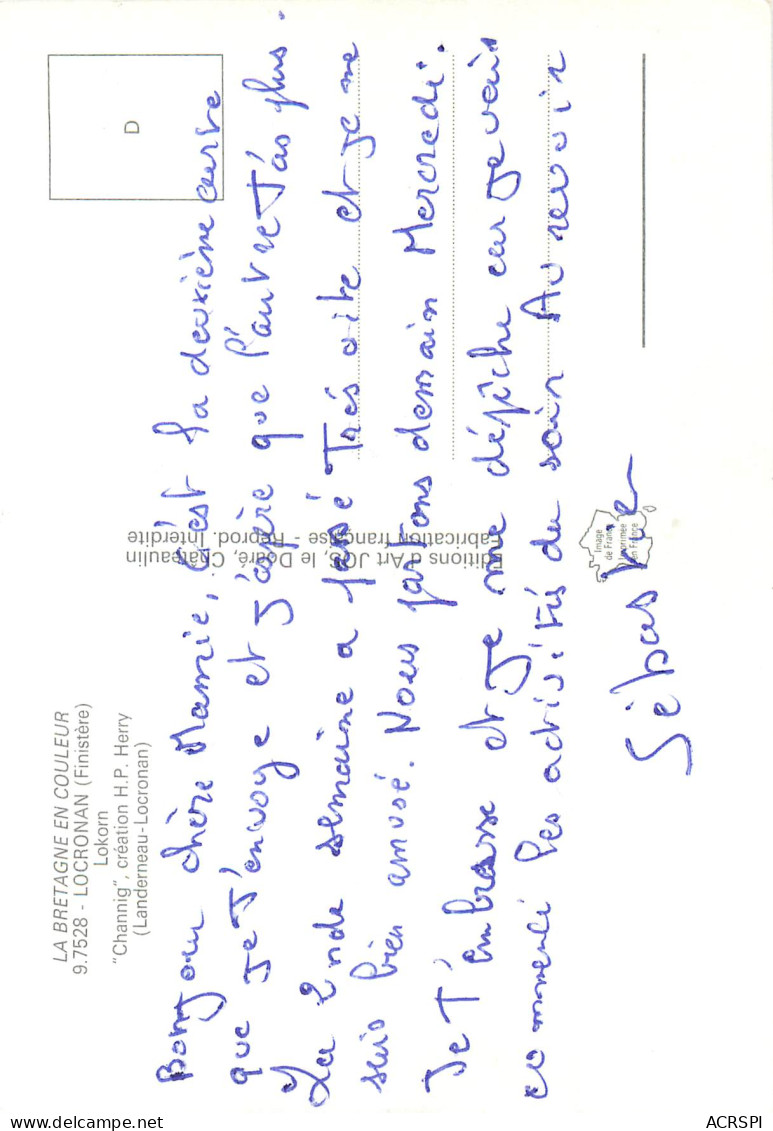 LA BRETAGNE EN COULEUR
9.7528 - LOCRONAN (Finistère)
Lokorn
"Channig", création H.P. Herry
(Landerneau-Locronan)
D
Bonjour chère Mamie, C'est la deuxième carte
que je T'envoye et J'aspère que l'autre T'as plus.
La 2nde semaine a passé Très vite et je me
suis bien amusé. Nous partons demain Mercredi.
Je T'embrasse et je me dépêche car je vais
commencé les activités du soir Au revoir
Sébastien
Editions d'Art JOS, le Doaré, Châteaulin
Fabrication française - Reprod. Interdite
Image
de France
Imprimée
en France
ACRSPI